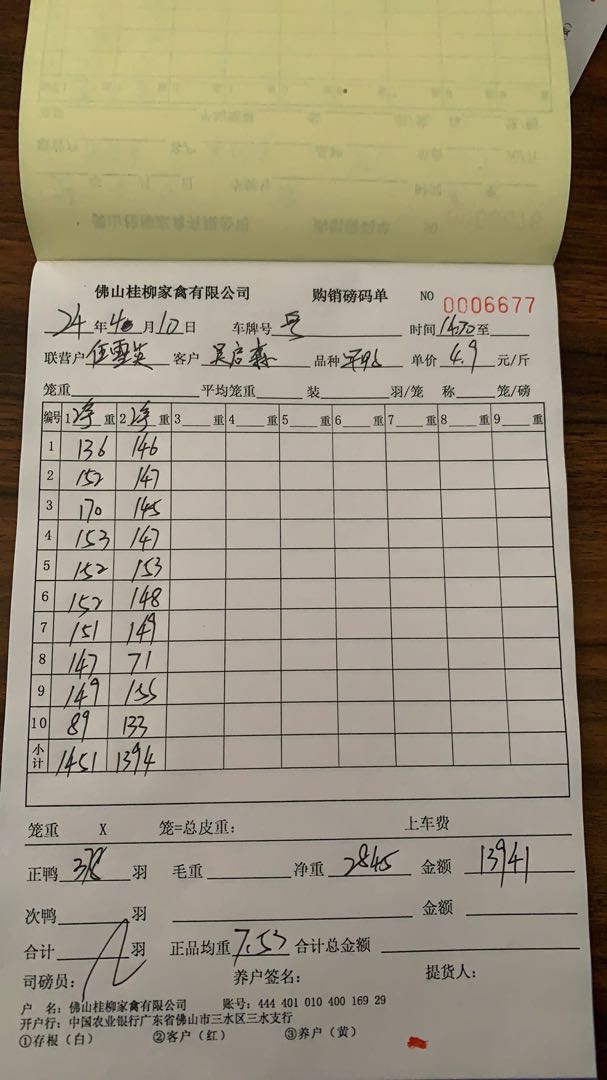 佛山桂柳家禽有限公司 购销磅码单 NO 0006677
24 年 4 月 10 日 车牌号 时间 至
联营户 伍雪英 客户 吴启森 品种 单价 4.9 元/斤
笼重 平均笼重 装 羽/笼 称 笼/磅
编号 1 净 重 2 净 重 3 重 4 重 5 重 6 重 7 重 8 重 9 重
1 136 146
2 152 147
3 170 145
4 153 147
5 152 153
6 152 148
7 151 149
8 147 71
9 149 155
10 89 133
小计 1451 1394
笼重 X 笼=总皮重： 上车费
正鸭 378 羽 毛重 净重 2845 金额 13941
次鸭 羽 金额
合计 羽 正品均重 7.53 合计总金额
司磅员： 养户签名： 提货人：
户 名：佛山桂柳家禽有限公司 账号：444 401 010 400 169 29
开户行：中国农业银行广东省佛山市三水区三水支行
①存根（白） ②客户（红） ③养户（黄）